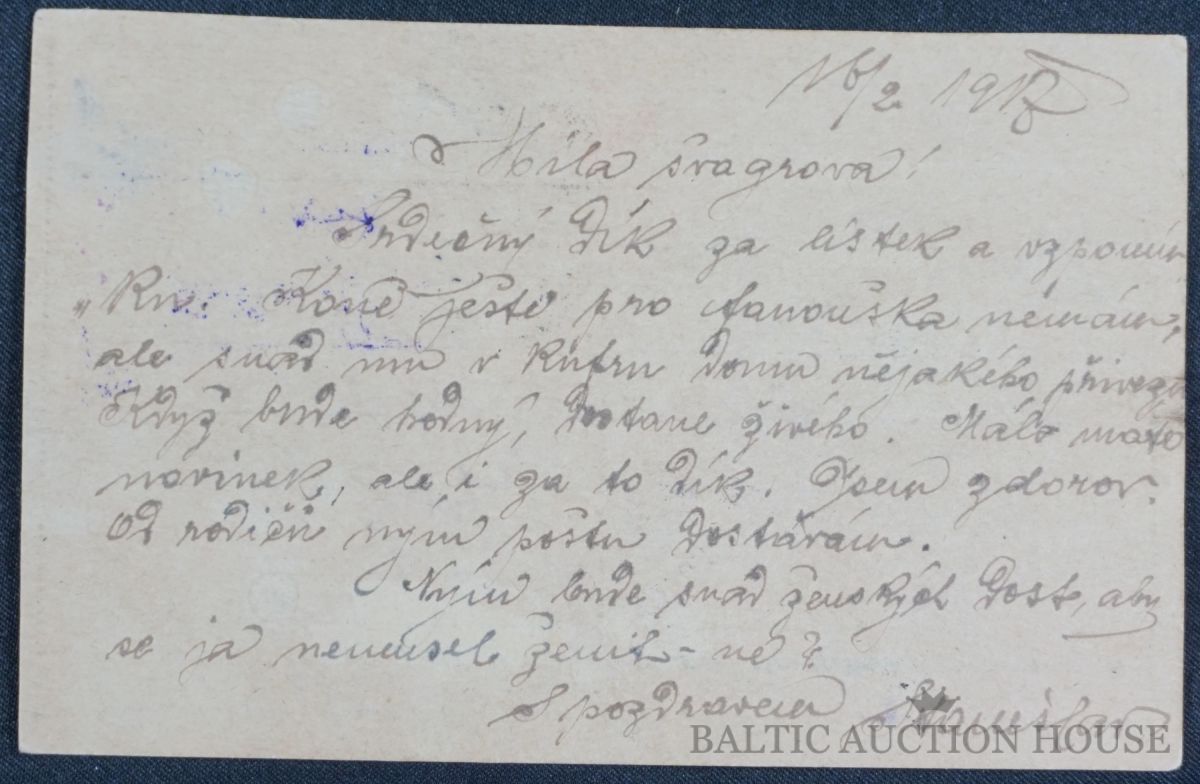 16/2 1917
Milá švagrová!
Srdečný dík za lístek a vzpomín
„ku. Koně ještě pro Fanouška nemám,
ale snad mu v kufru domu nějakého přivezu
Když bude hodný, dostane živého. Málo máte
novinek, ale i za to dík. Jsem zdráv.
Od rodičů nyní poštu dostávám.
Nyní bude snad ženských dost, aby
se já nemusel ženit – ne?
S pozdravem Stanislav
BALTIC AUCTION HOUSE